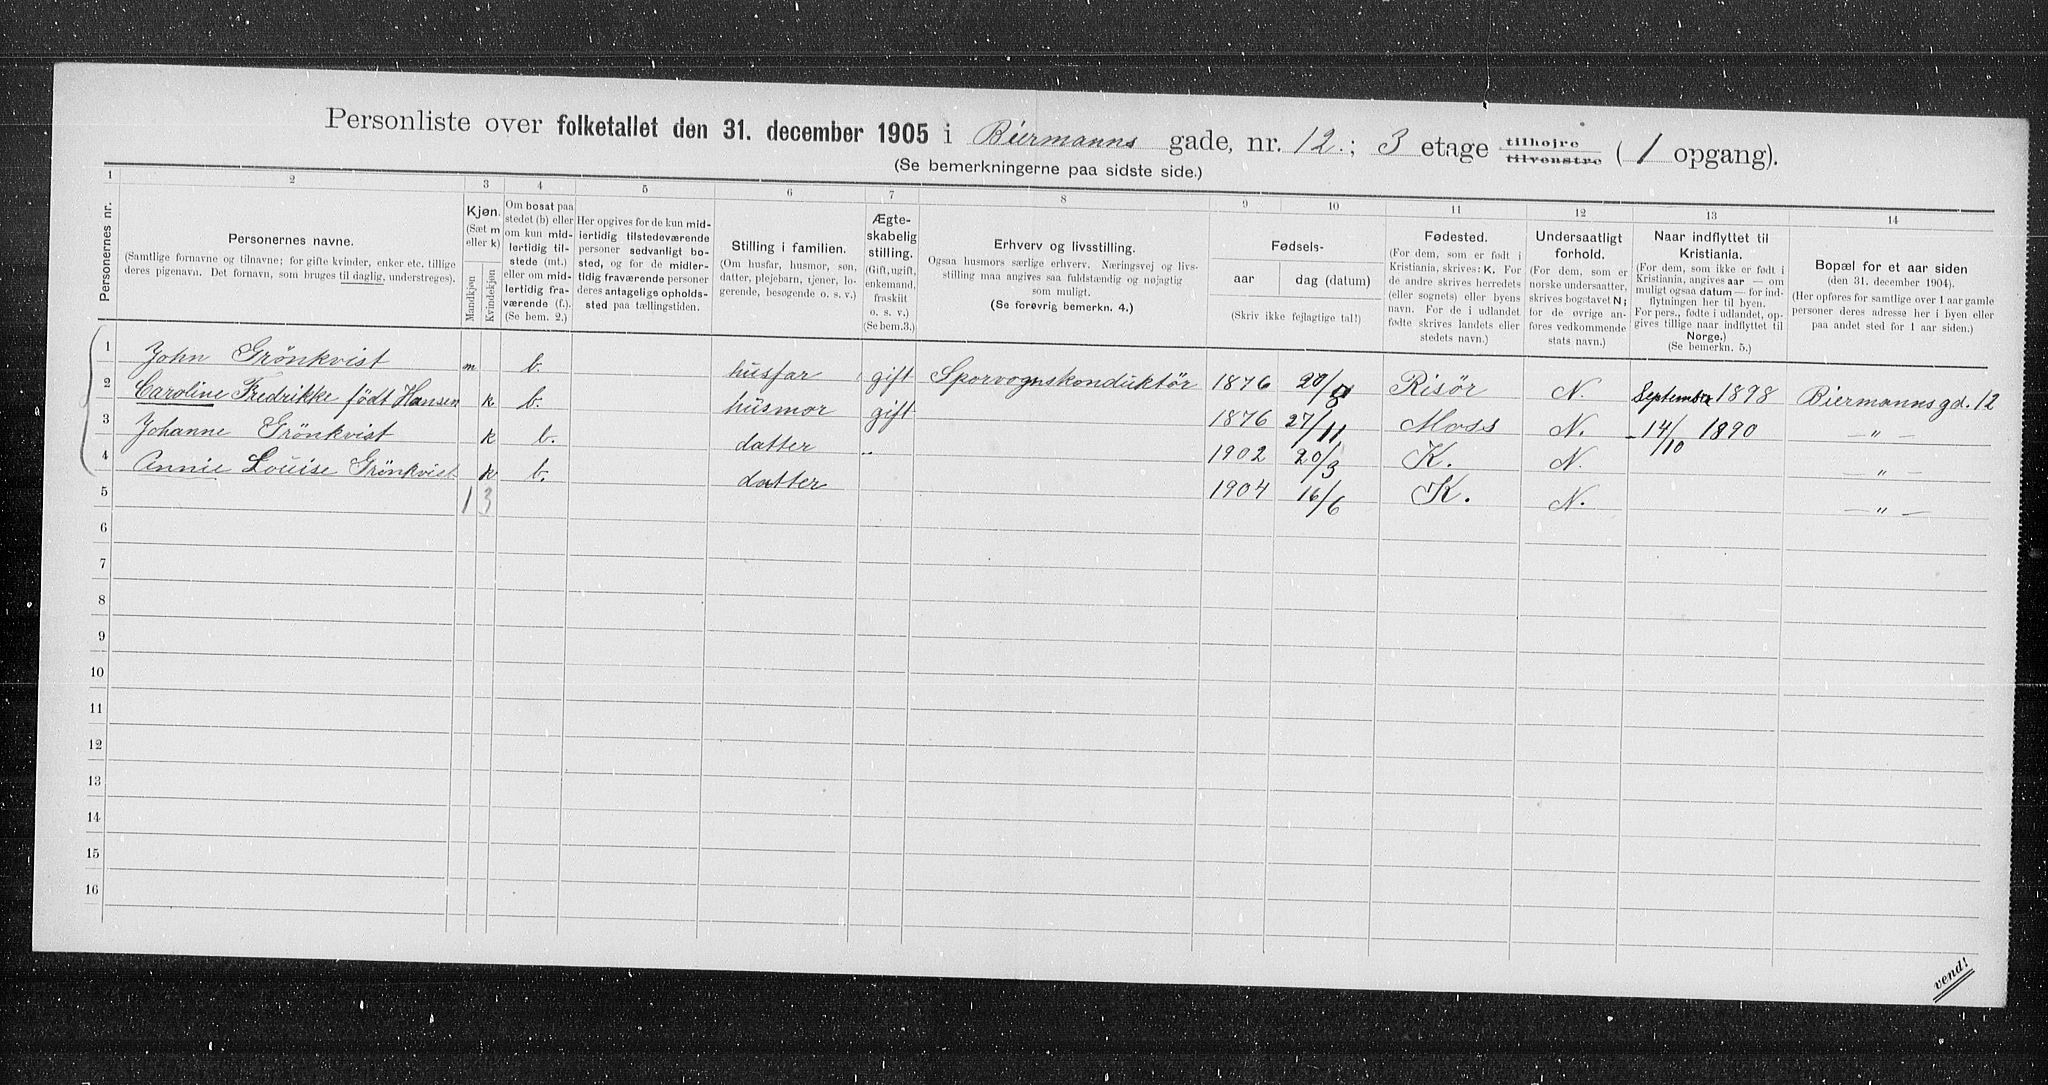 Personliste over folketallet den 31. december 1905 i Biermanns gade, nr. 12.; 3 etage tilhøjre tilvenstre (1 opgang).
(Se bemerkningerne paa sidste side.)
1 2 3 4 5 6 7 8 9 10 11 12 13 14
Personernes nr.
Personernes navne.
(Samtlige fornavne og tilnavne; for gifte kvinder, enker etc. tillige
deres pigenavn. Det fornavn, som bruges til daglig, understreges).
Kjøn.
(Sæt m
eller k)
Mandkjøn
Kvindekjøn
Om bosat paa
stedet (b) eller
om kun mid-
lertidig til-
stede (mt.)
eller om mid-
lertidig fra-
værende (f.).
(Se bem. 2.)
Her opgives for de kun mid-
lertidig tilstedeværende
personer sedvanligt bo-
sted, og for de midler-
tidig fraværende personer
deres antagelige opholds-
sted paa tællingstiden.
Stilling i familien.
(Om husfar, husmor, søn,
datter, plejebarn, tjener, lo-
gerende, besøgende o. s. v.)
Ægte-
skabelig
stilling.
(Gift, ugift,
enkemand,
fraskilt
o. s. v.)
(Se bem.3.)
Erhverv og livsstilling.
Ogsaa husmors særlige erhverv. Næringsvej og livs-
stilling maa angives saa fuldstændig og nøjagtig
som muligt.
(Se forøvrig bemerkn. 4.)
Fødsels-
aar dag (datum)
(Skriv ikke fejlagtige tal!)
Fødested.
(For dem, som er født i
Kristiania, skrives: K. For
de andre skrives herredets
(eller sognets) eller byens
navn. For de i udlandet
fødte skrives landets eller
stedets navn.)
Undersaatligt
forhold.
(For dem, som er
norske undersaatter,
skrives bogstavet N;
for de øvrige an-
føres vedkommende
stats navn.)
Naar indflyttet til
Kristiania.
(For dem, som ikke er født i
Kristiania, angives aar — om
muligt ogsaa datum — for ind-
flytningen her til byen.
For pers., fødte i udlandet, op-
gives tillige naar indflyttet til
Norge.)
(Se bemerkn. 5.)
Bopæl for et aar siden
(den 31. december 1904).
(Her opføres for samtlige over 1 aar gamle
personer deres adresse her i byen eller
paa andet sted for 1 aar siden.)
1 John Grönkvist m b. husfar gift Sporvognskonduktör 1876 20/8 Risör N. September 1898 Biermannsgd. 12
2 Caroline Fredrikke födt Hansen k b. husmor gift 1876 27/11 Moss N. 14/10 1890 — „ —
3 Johanne Grönkvist k b. datter „ 1902 20/3 K. N. — „ —
4 Annie Louise Grönkvist k b. datter 1904 16/6 K. N. — „ —
5 1 3
6
7
8
9
10
11
12
13
14
15
16
vend!